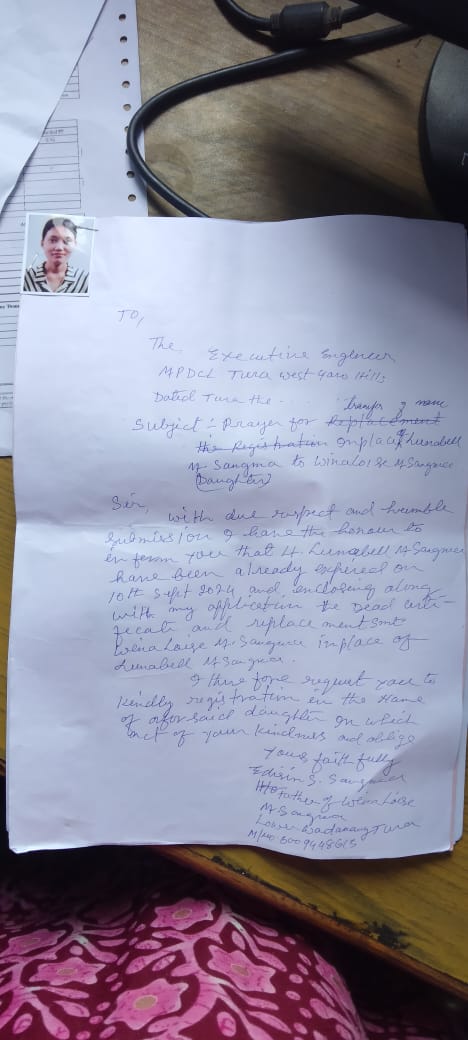 TO,
The, Executive Engineer
MPDCL Tura West Garo Hills
Dated Tura the . . . .
transfer of name
Subject :- Prayer for Replacement
the Registration onplace of Lunabell
M Sangma to WinaLoise M Sangma
(Daughter)
Sir, with due respect and humble
submission I have the honour to
inform you that Lt. Lunabell M Sangma
have been already expired on
10th Sept 2024, and enclosing along
with my application the Dead certi-
ficate and replacement Smt
WinaLoise M. Sangma inplace of
Lunabell M Sangma.
I there fore request you to
Kindly registration in the Name
of aforsaid daughter on which
act of your kindness and oblige
Yours faithfully
Edisin S. Sangma
Father of WinaLoise
M Sangma
Lower Wadanang Tura